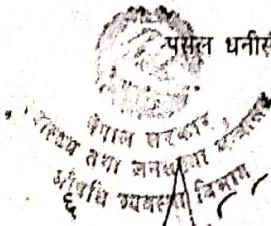 पसल धनीर
नेपाल सरकार
स्वास्थ्य तथा जनसंख्या मन्त्रालय
औषधि व्यवस्था विभाग
६